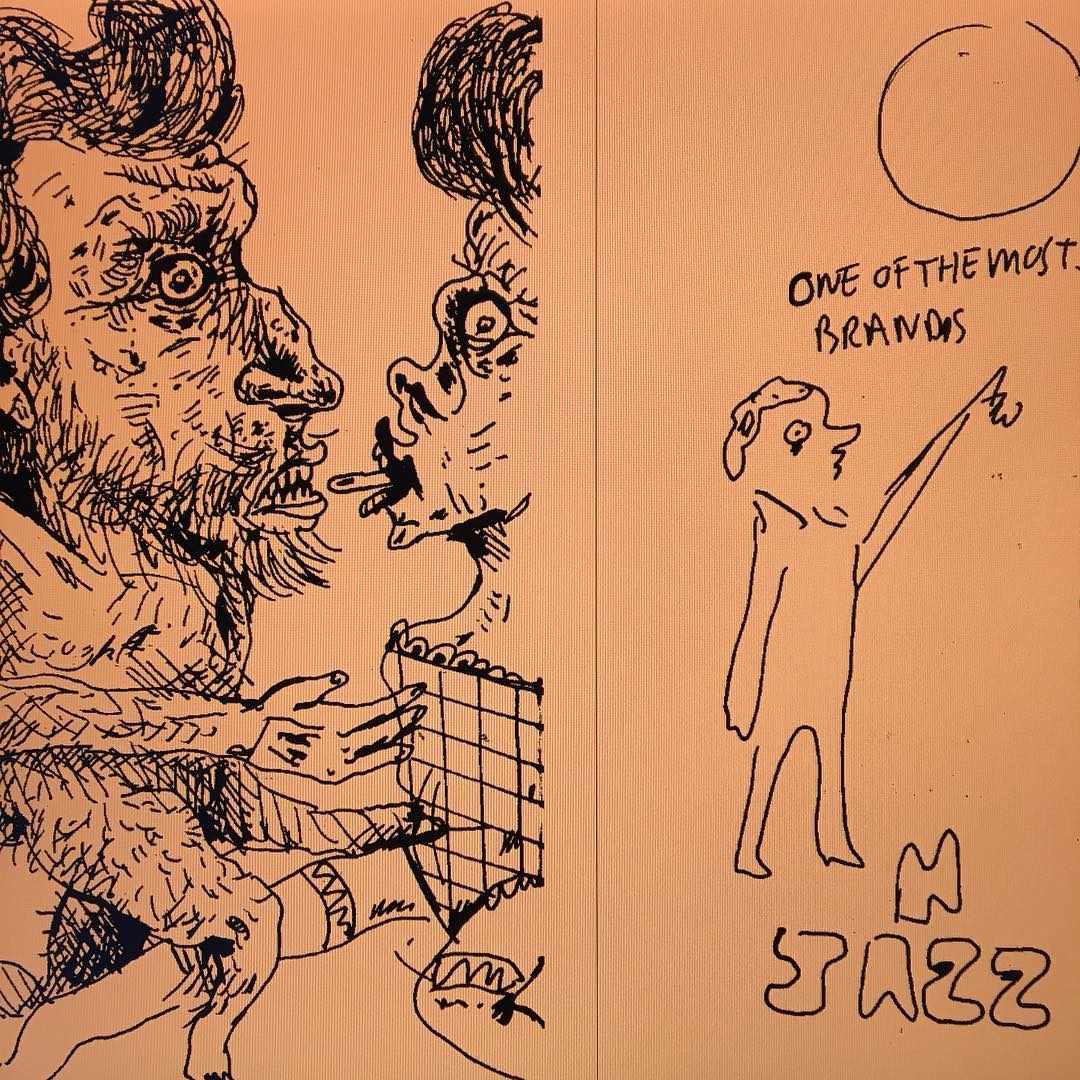 ONE OF THE MOST
BRANDS
N
JAZZ